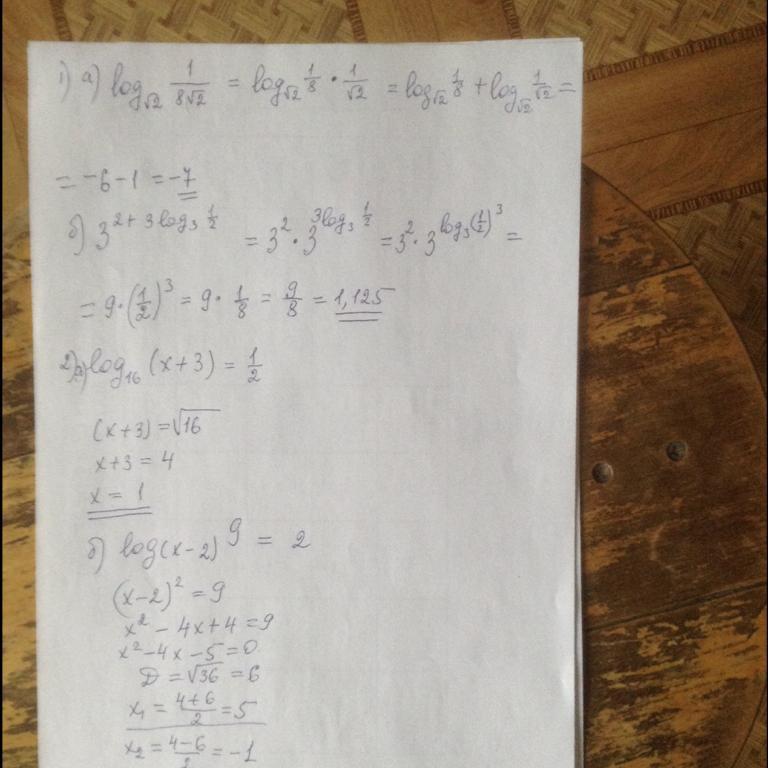 1) а) log_√2 1/(8√2) = log_√2 1/8 · 1/√2 = log_√2 1/8 + log_√2 1/√2 =
= -6 - 1 = -7
б) 3^(2 + 3 log_3 1/2) = 3^2 · 3^(3 log_3 1/2) = 3^2 · 3^(log_3 (1/2)^3) =
= 9 · (1/2)^3 = 9 · 1/8 = 9/8 = 1,125
2) а) log_16 (x+3) = 1/2
(x+3) = √16
x+3 = 4
x = 1
б) log_(x-2) 9 = 2
(x-2)^2 = 9
x^2 - 4x + 4 = 9
x^2 - 4x - 5 = 0
D = √36 = 6
x_1 = (4+6)/2 = 5
x_2 = (4-6)/2 = -1